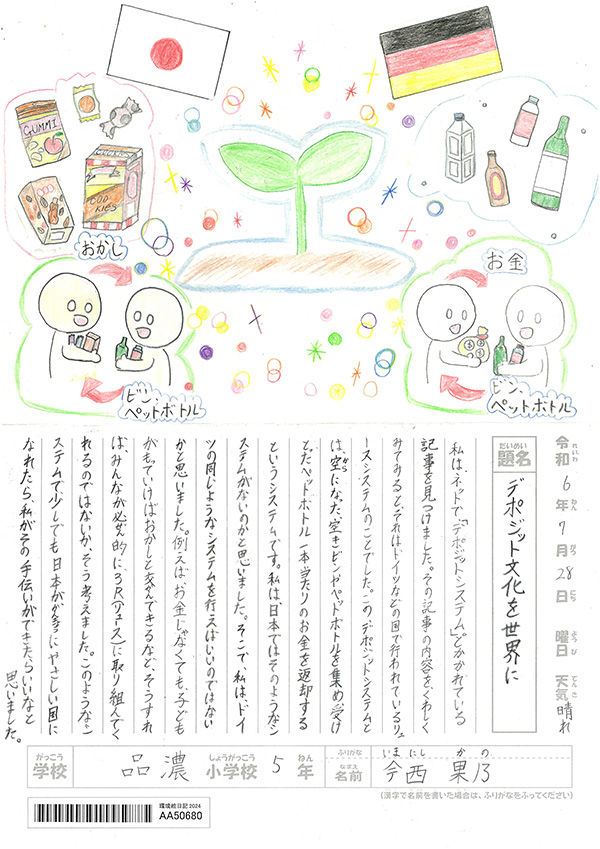 GUMMI
COO
KIES
おかし
ビン、
ペットボトル
お金
ビン、
ペットボトル
令和6年7月28日 曜日 天気 晴れ
れいわ ねん がつ にち ようび てんき
だいめい
題名
デポジット文化を世界に
私は、ネットで「デポジットシステム」とかかれている
記事を見つけました。その記事の内容をくわしく
みてみると、それはドイツなどの国で行われているリュ
ースシステムのことでした。このデポジットシステムと
は、空になった、空きビンやペットボトルを集め、受け
から
とたペットボトル一本当たりのお金を返却する
というシステムです。私は、日本ではそのようなシ
ステムがないのかと思いました。そこで、私は、ドイ
ツの同じようなシステムを行えばいいのではない
かと思いました。例えば、お金じゃなくても、子ども
がもていけばおかしと できるなど、そうすれ
ば、みんなが必然的に3R(リュース)に取り組んでく
れるのではないか、そう考えました。このようなシ
ステムで少しでも日本が にやさしい国に
なれたら、私がその手伝いができたらいいなと
思いました。
がっこう しょうがっこう ねん
学校 品濃 小学校 5 年
ふりがな いまにし かの
なまえ
名前 今西 果乃
(漢字で名前を書いた場合は、ふりがなをふってください)
環境絵日記2024
AA50680